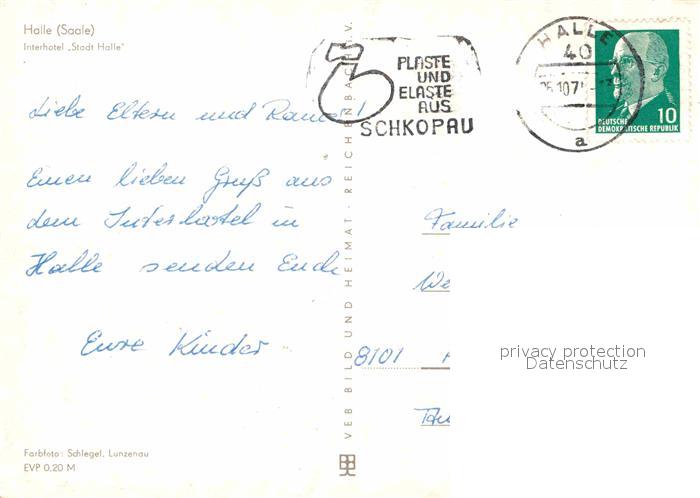 Halle (Saale)
Interhotel „Stadt Halle"
PLASTE
UND
ELASTE
AUS
SCHKOPAU
HALLE
40
a
DEUTSCHE
DEMOKRATISCHE REPUBLIK
10
Liebe Eltern und
Einen lieben Gruß aus
dem Interhotel in
Halle senden Euch
Eure Kinder
VEB BILD UND HEIMAT · REICHENBACH I. V.
Familie
We
8101
privacy protection
Datenschutz
Farbfoto: Schlegel, Lunzenau
EVP 0,20 M